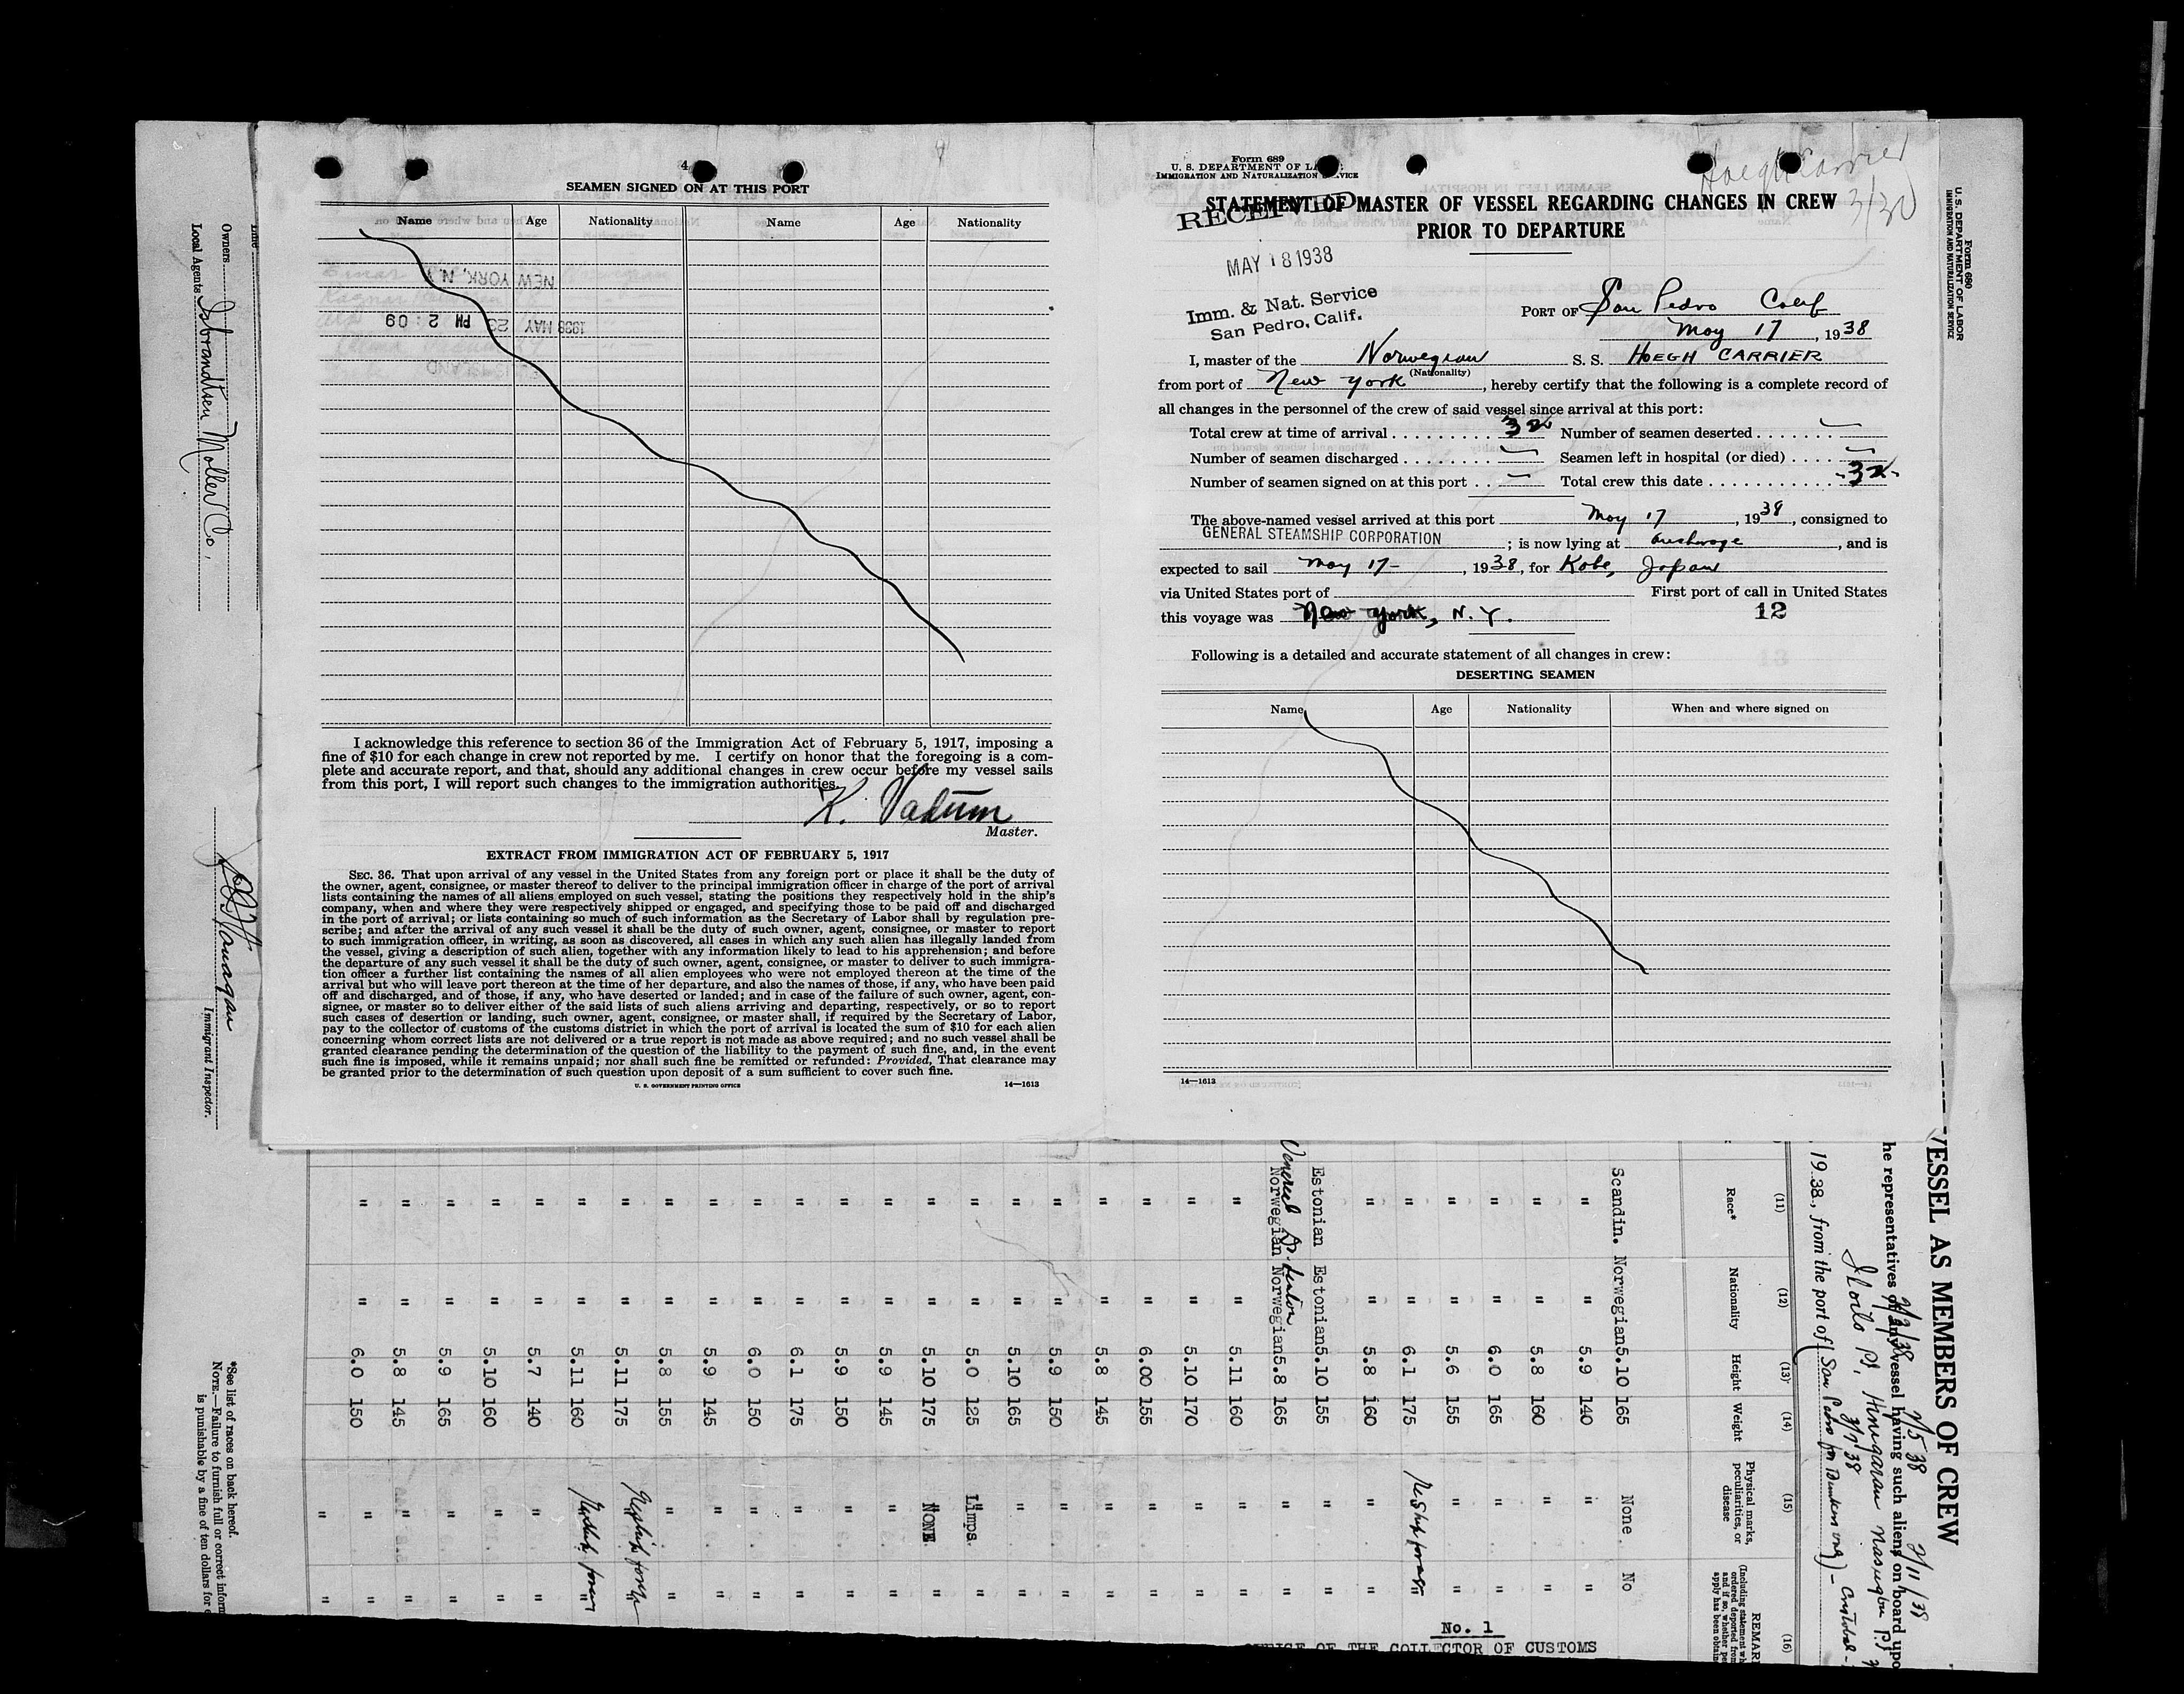 4
SEAMEN SIGNED ON AT THIS PORT
Name Age Nationality Name Age Nationality
NEW YORK, N.Y.
1938 MAY 23 PM 2:09
ELLIS ISLAND
I acknowledge this reference to section 36 of the Immigration Act of February 5, 1917, imposing a
fine of $10 for each change in crew not reported by me. I certify on honor that the foregoing is a com-
plete and accurate report, and that, should any additional changes in crew occur before my vessel sails
from this port, I will report such changes to the immigration authorities.
K. Vatum
Master.
EXTRACT FROM IMMIGRATION ACT OF FEBRUARY 5, 1917
SEC. 36. That upon arrival of any vessel in the United States from any foreign port or place it shall be the duty of
the owner, agent, consignee, or master thereof to deliver to the principal immigration officer in charge of the port of arrival
lists containing the names of all aliens employed on such vessel, stating the positions they respectively hold in the ship's
company, when and where they were respectively shipped or engaged, and specifying those to be paid off and discharged
in the port of arrival; or lists containing so much of such information as the Secretary of Labor shall by regulation pre-
scribe; and after the arrival of any such vessel it shall be the duty of such owner, agent, consignee, or master to report
to such immigration officer, in writing, as soon as discovered, all cases in which any such alien has illegally landed from
the vessel, giving a description of such alien, together with any information likely to lead to his apprehension; and before
the departure of any such vessel it shall be the duty of such owner, agent, consignee, or master to deliver to such immigra-
tion officer a further list containing the names of all alien employees who were not employed thereon at the time of the
arrival but who will leave port thereon at the time of her departure, and also the names of those, if any, who have been paid
off and discharged, and of those, if any, who have deserted or landed; and in case of the failure of such owner, agent, con-
signee, or master so to deliver either of the said lists of such aliens arriving and departing, respectively, or so to report
such cases of desertion or landing, such owner, agent, consignee, or master shall, if required by the Secretary of Labor,
pay to the collector of customs of the customs district in which the port of arrival is located the sum of $10 for each alien
concerning whom correct lists are not delivered or a true report is not made as above required; and no such vessel shall be
granted clearance pending the determination of the question of the liability to the payment of such fine, and, in the event
such fine is imposed, while it remains unpaid; nor shall such fine be remitted or refunded: Provided, That clearance may
be granted prior to the determination of such question upon deposit of a sum sufficient to cover such fine.
U. S. GOVERNMENT PRINTING OFFICE 14—1613
Form 689
U. S. DEPARTMENT OF LABOR
IMMIGRATION AND NATURALIZATION SERVICE
Hoegh Carrier
3/30
STATEMENT OF MASTER OF VESSEL REGARDING CHANGES IN CREW
PRIOR TO DEPARTURE
RECEIVED
MAY 18 1938
Imm. & Nat. Service
San Pedro, Calif.
PORT OF San Pedro Calif
May 17, 1938
I, master of the Norwegian S. S. HOEGH CARRIER
(Nationality)
from port of New York, hereby certify that the following is a complete record of
all changes in the personnel of the crew of said vessel since arrival at this port:
Total crew at time of arrival 32 Number of seamen deserted —
Number of seamen discharged — Seamen left in hospital (or died) —
Number of seamen signed on at this port — Total crew this date -32-
The above-named vessel arrived at this port May 17, 1938, consigned to
GENERAL STEAMSHIP CORPORATION; is now lying at anchorage, and is
expected to sail May 17-, 1938, for Kobe, Japan
via United States port of First port of call in United States
this voyage was New York, N.Y. 12
Following is a detailed and accurate statement of all changes in crew:
DESERTING SEAMEN
Name Age Nationality When and where signed on
14—1613
Line
Owners
Local Agents Isbrandtsen Moller Co.
Immigrant Inspector.
*See list of races on back hereof.
NOTE.—Failure to furnish full or correct inform
is punishable by a fine of ten dollars for e
Form 680
U. S. DEPARTMENT OF LABOR
IMMIGRATION AND NATURALIZATION SERVICE
VESSEL AS MEMBERS OF CREW
he representatives of any vessel having such aliens on board upo
2/11/38
Iloilo P.I.
19.38., from the port of San Pedro
Cristobal
(11) (12) (13) (14) (15) (16)
Race* Nationality Height Weight Physical marks, peculiarities, or disease REMAR
Scandin. Norwegian 5.10 165 None No
" " 5.9 140 " "
" " 5.8 160 " "
" " 6.0 165 " "
" " 5.6 155 " "
" " 6.1 175 "
" " 5.8 160 " "
Estonian Estonian 5.10 155 " "
Norwegian Norwegian 5.8 165 " "
" " 5.11 160 " "
" " 5.10 170 " "
" " 6.00 155 " "
" " 5.8 145 " "
" " 5.9 150 " "
" " 5.10 165 " "
" " 5.0 125 Limps. "
" " 5.10 175 NONE "
" " 5.9 145 " "
" " 5.9 150 " "
" " 6.1 175 " "
" " 6.0 150 " "
" " 5.9 145 " "
" " 5.8 155 " "
" " 5.11 175 "
" " 5.11 160 "
" " 5.7 140 " "
" " 5.10 160 " "
" " 5.9 165 " "
" " 5.8 145 " "
" " 6.0 150 " "
No. 1
OFFICE OF THE COLLECTOR OF CUSTOMS